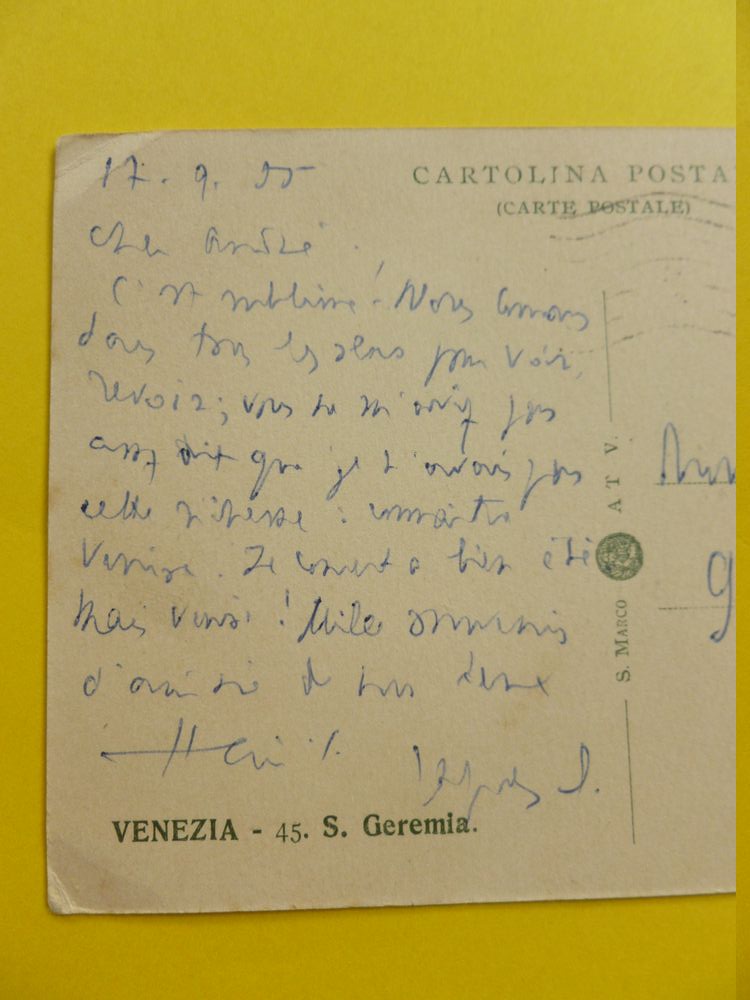 17. 9. 55
CARTOLINA POSTA
(CARTE POSTALE)
Cher André.
C'est sublime! Nous courons
dans tous les sens pour voir,
revoir; vous ne m'aviez pas
assez dit que je n'avais pas
cette richesse : connaître
Venise. Le concert a bien été
mais Venise! Mille souvenirs
d'amitié de tous deux
Henri
S. MARCO
A T V.
VENEZIA - 45. S. Geremia.